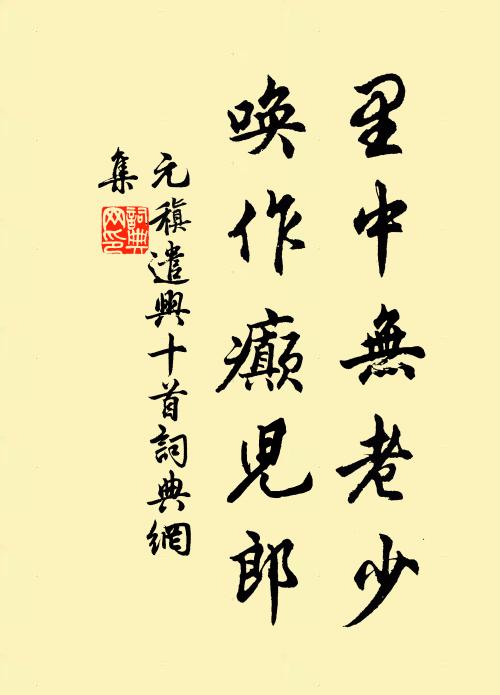 里中無老少
喚作癲兒郎
元稹遣興十首詞典網
集
詞典
网印